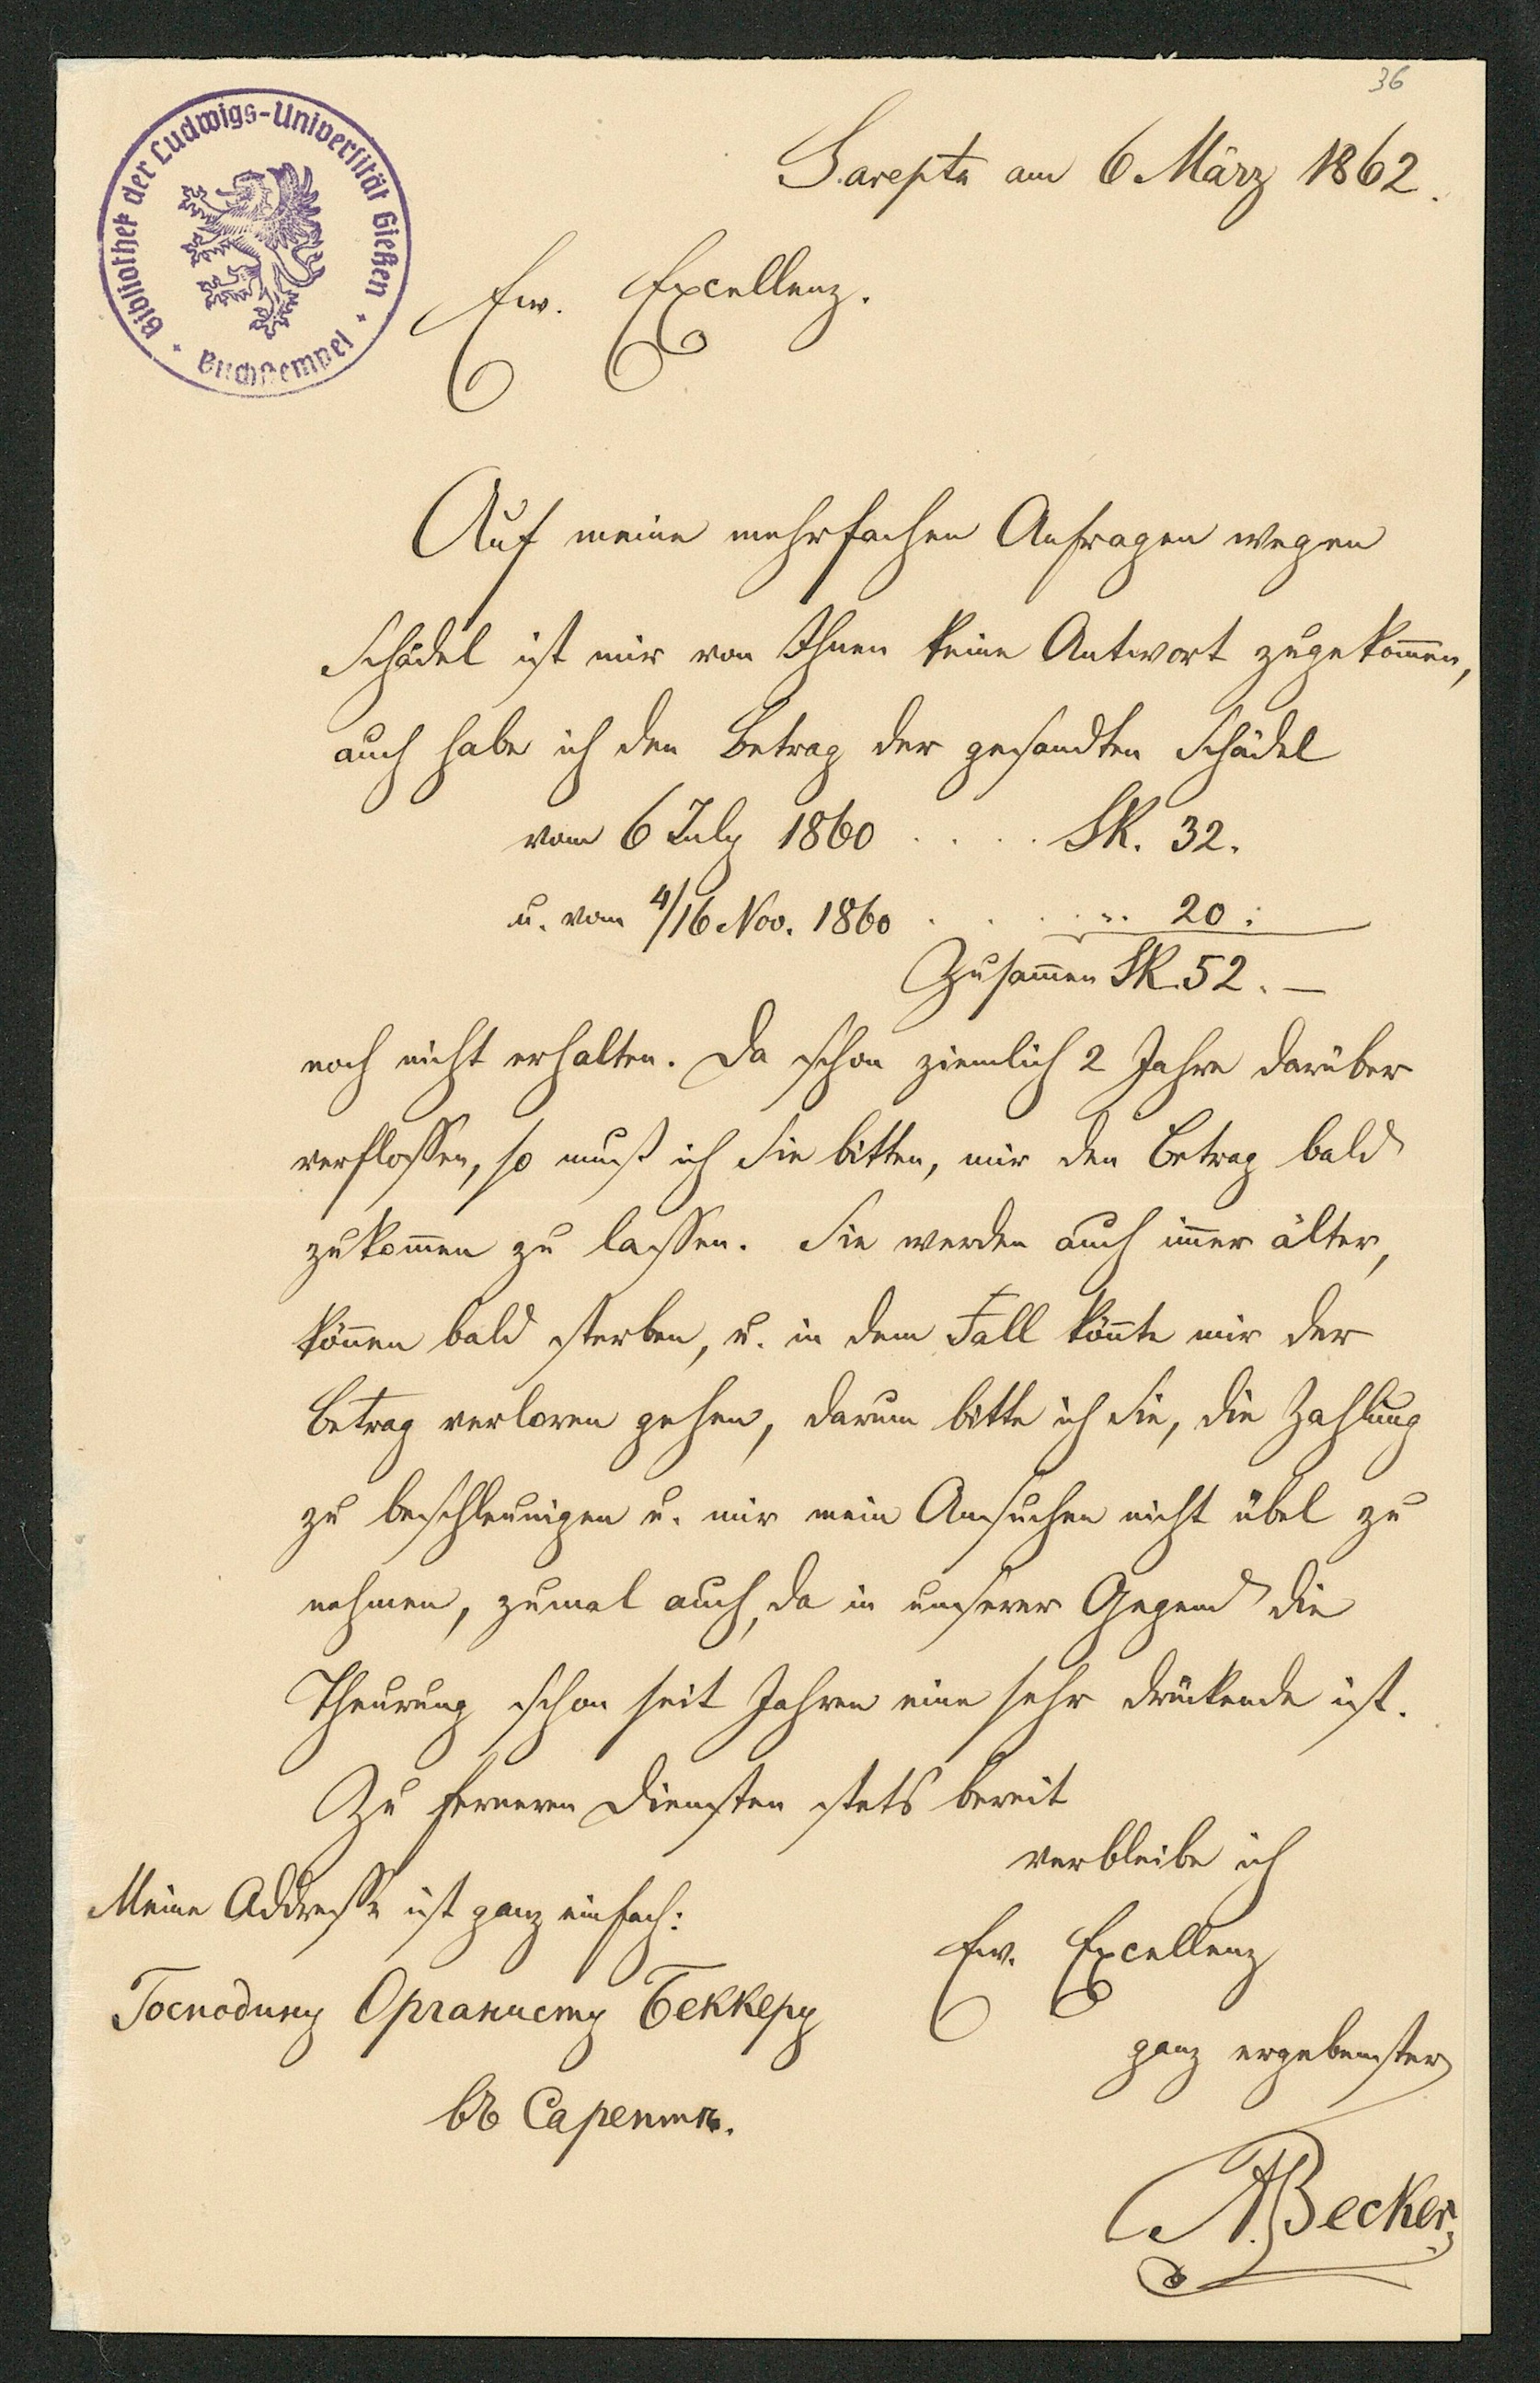 36
Bibliothek der Ludwigs-Universität Gießen
Buchstempel
Sarepta am 6 März 1862.
Ew. Excellenz.
Auf meine mehrfachen Anfragen wegen
Schädel ist mir von Ihnen keine Antwort zugekom̄en,
auch habe ich den Betrag der gesandten Schädel
vom 6 July 1860 . . . . SR. 32.
u. vom 4/16 Nov. 1860 . . . . „ 20.
Zusam̄en SR. 52. —
noch nicht erhalten. Da schon ziemlich 2 Jahre darüber
verflossen, so muß ich Sie bitten, mir den Betrag bald
zukom̄en zu lassen. Sie werden auch im̄er älter,
kön̄en bald sterben, u. in dem Fall kön̄te mir der
Betrag verloren gehen, darum bitte ich Sie, die Zahlung
zu beschleunigen u. mir mein Ansuchen nicht übel zu
nehmen, zumal auch, da in unserer Gegend die
Theurung schon seit Jahren eine sehr drückende ist.
Zu ferneren Diensten stets bereit
verbleibe ich
Meine Addresse ist ganz einfach:
Ew. Excellenz
Господину Органисту Беккеру
ganz ergebenster
въ Сарептѣ.
A. Becker